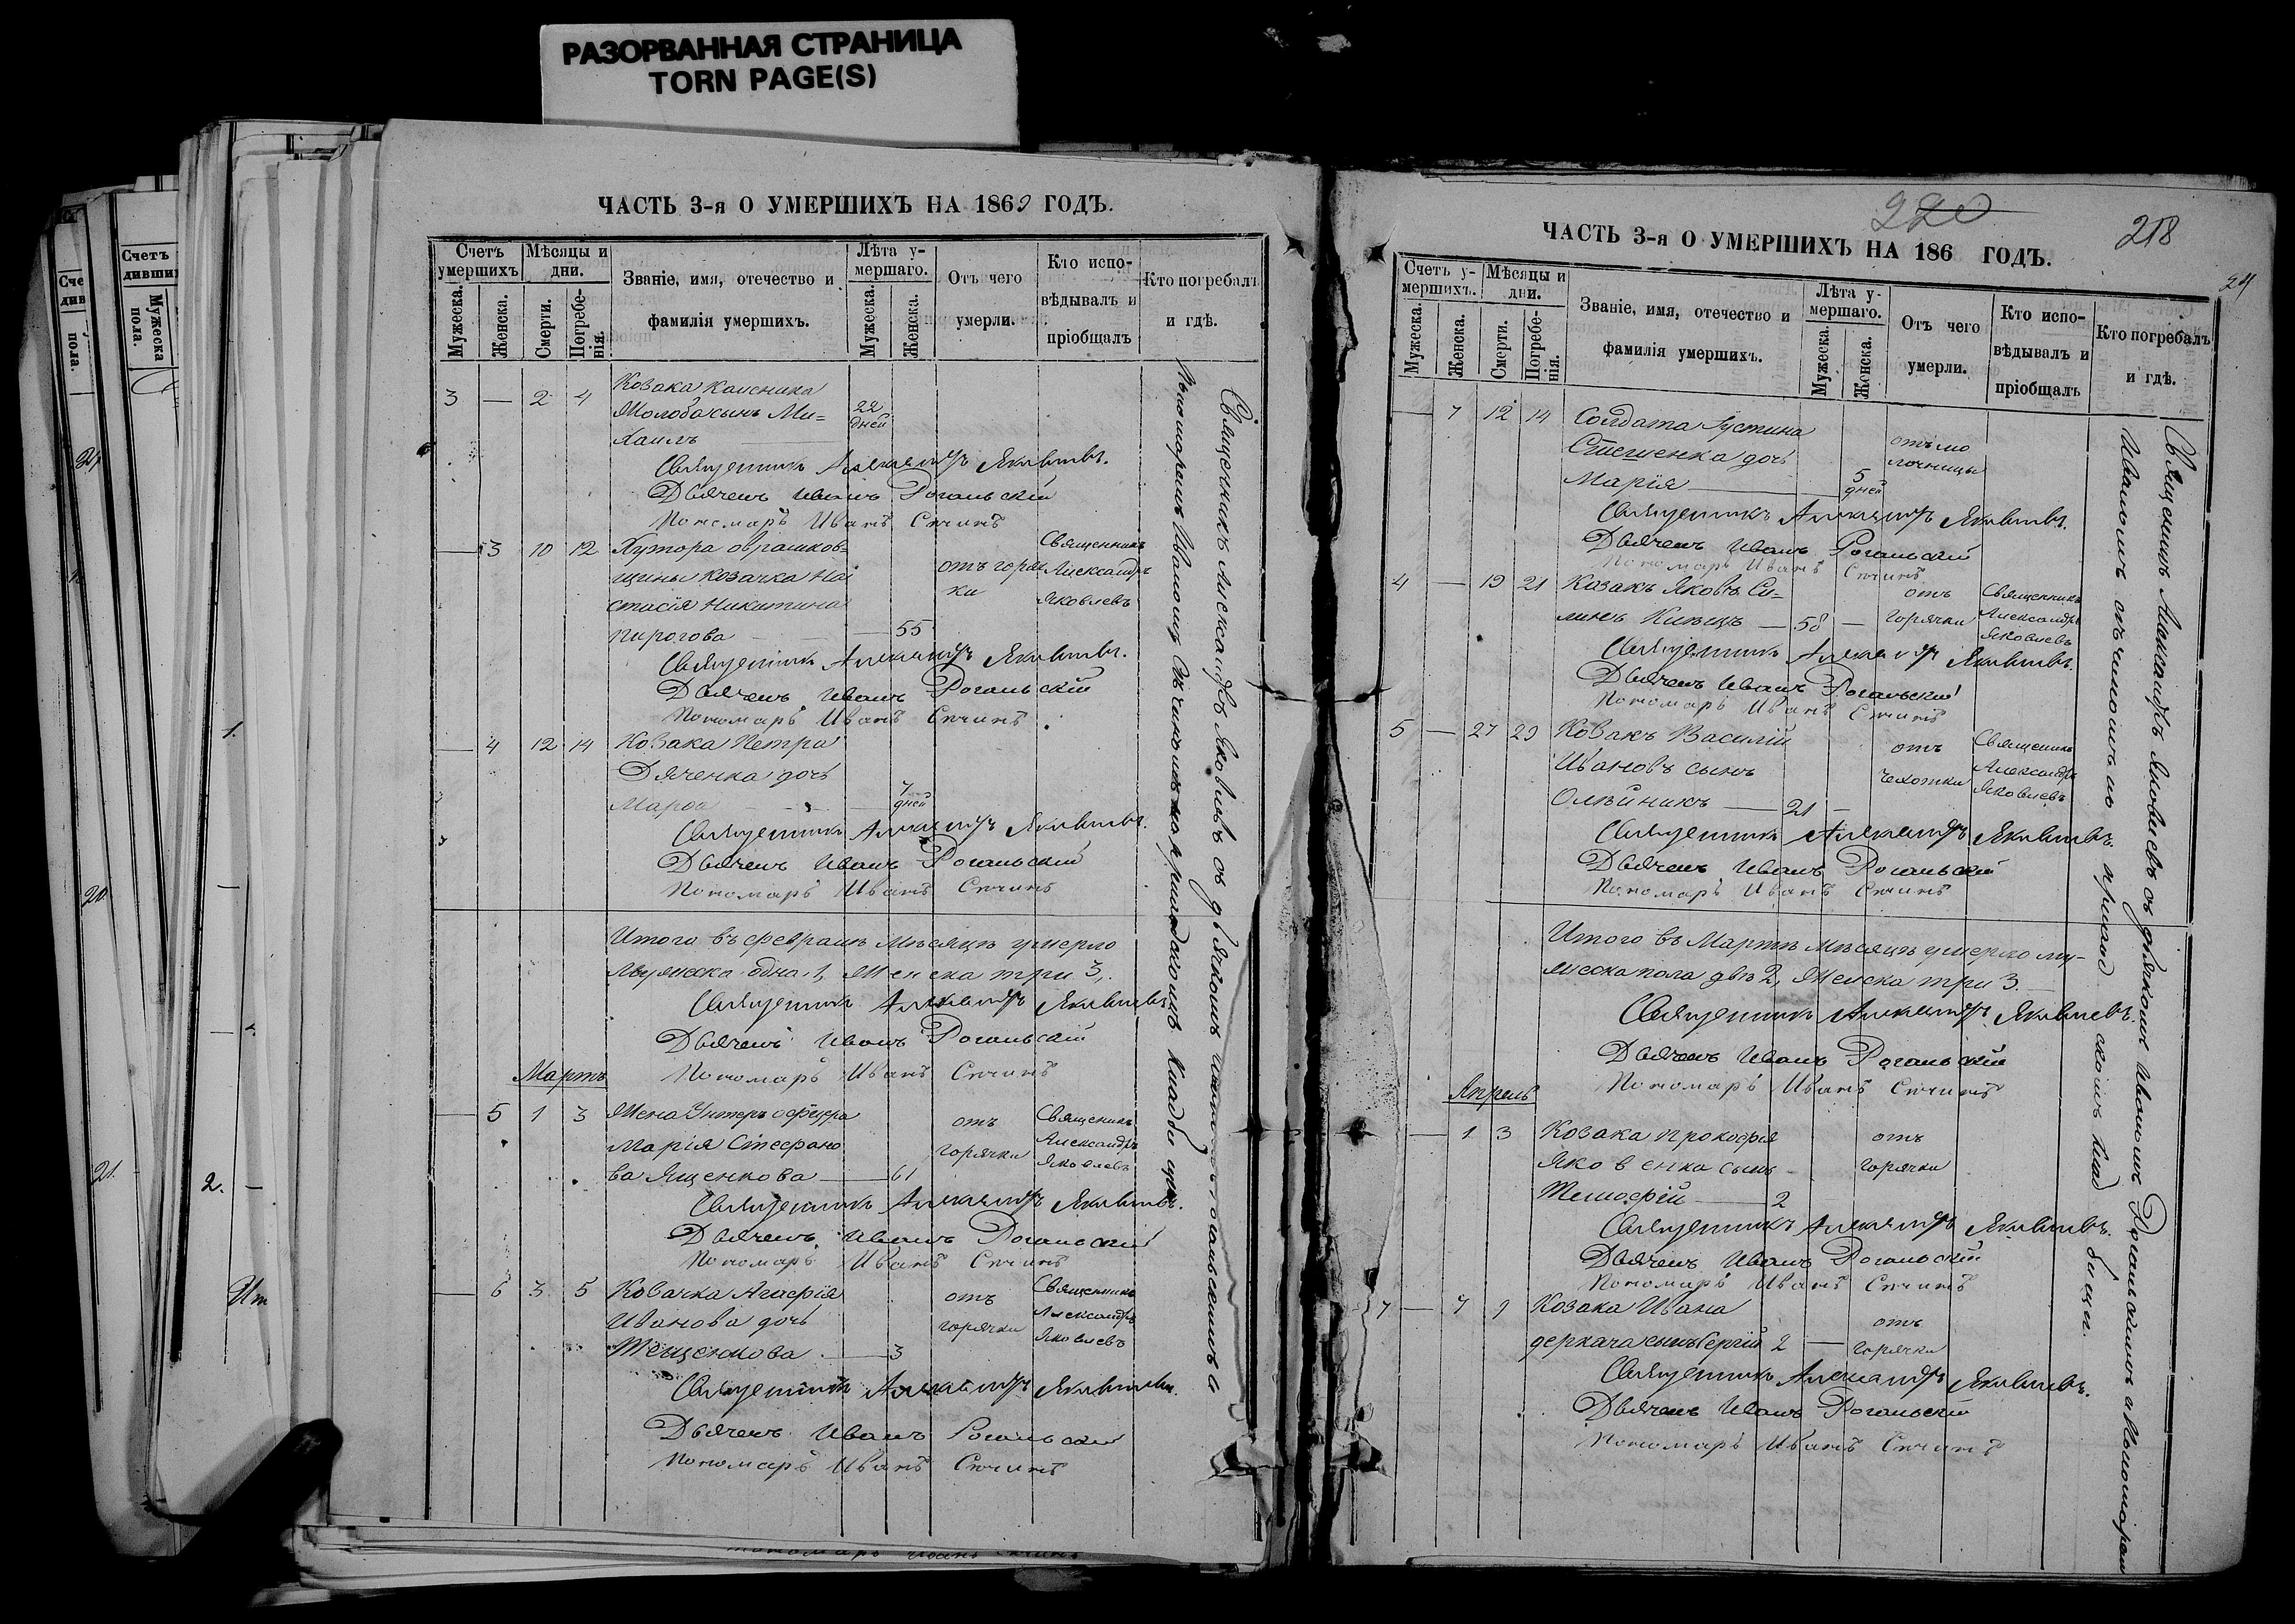 РАЗОРВАННАЯ СТРАНИЦА
TORN PAGE(S)
ЧАСТЬ 3-я О УМЕРШИХЪ НА 1869 ГОДЪ.
Счетъ умершихъ
Мѣсяцы и дни.
Званіе, имя, отечество и фамилія умершихъ.
Лѣта умершаго.
Отъ чего умерли.
Кто исповѣдывалъ и пріобщалъ
Кто погребалъ и гдѣ.
Мужеска.
Женска.
Смерти.
Погребенія.
Мужеска.
Женска.
3 — 2 4 Козака
Молоба сынъ Ми= 22 дней
хаилъ
Священникъ Александръ Яковлевъ.
Дьячекъ Иванъ Рогальскій
Пономарь Иванъ Сѣчинъ
— 3 10 12 Хутора оврашков= Священникъ
щины Козачка На отъ горяч Александръ
стасія Никитина ки Яковлевъ
Пирогова — 55
Священникъ Александръ Яковлевъ.
Дьячекъ Иванъ Рогальскій
Пономарь Иванъ Сѣчинъ
— 4 12 14 Козака Петра
Дяченка дочь
Марѳа — 7 дней
Священникъ Александръ Яковлевъ.
Дьячекъ Иванъ Рогальскій
Пономарь Иванъ Сѣчинъ
Итого въ февралѣ мѣсяцѣ умерло
мужеска одна 1, Женска три 3,
Священникъ Александръ Яковлевъ
Дьячекъ Иванъ Рогальскій
Мартъ
Пономарь Иванъ Сѣчинъ
— 5 1 3 Жена Унтеръ офицера отъ Священникъ
Марія Стефано горячки Александръ
ва Ященкова — 61 Яковлевъ
Священникъ Александръ Яковлевъ.
Дьячекъ Иванъ Рогальскій
Пономарь Иванъ Сѣчинъ
— 6 3 5 Козачка Агафія отъ Священникъ
Иванова дочь горячки Александръ
Тещенкова — 3 Яковлевъ
Священникъ Александръ Яковлевъ.
Дьячекъ Иванъ Рогальскій
Пономарь Иванъ Сѣчинъ
Священникъ Александръ Яковлевъ съ дьячкомъ
Пономаремъ Иваномъ Сѣчинымъ на приходскомъ кладбищѣ.
220
218
24
ЧАСТЬ 3-я О УМЕРШИХЪ НА 186 ГОДЪ.
Счетъ умершихъ.
Мѣсяцы и дни.
Званіе, имя, отечество и фамилія умершихъ.
Лѣта умершаго.
Отъ чего умерли.
Кто исповѣдывалъ и пріобщалъ
Кто погребалъ и гдѣ.
Мужеска.
Женска.
Смерти.
Погребенія.
Мужеска.
Женска.
— 7 12 14 Солдата Густина отъ мо
Стешенка дочь лочницы
Марія — 5 дней
Священникъ Александръ Яковлевъ.
Дьячекъ Иванъ Рогальскій
Пономарь Иванъ Сѣчинъ
4 — 19 21 Козакъ Яковъ Си= отъ Священникъ
горячки Александръ
— 58 — Яковлевъ
Священникъ Александръ Яковлевъ.
Дьячекъ Иванъ Рогальскій
Пономарь Иванъ Сѣчинъ
5 — 27 29 Козакъ Василій отъ Священникъ
Ивановъ сынъ чахотки Александръ
Олѣйникъ — 21 — Яковлевъ
Священникъ Александръ Яковлевъ.
Дьячекъ Иванъ Рогальскій
Пономарь Иванъ Сѣчинъ
Итого въ Мартѣ мѣсяцѣ умерло му-
жеска пола два 2, Женска три 3.
Священникъ Александръ Яковлевъ.
Дьячекъ Иванъ Рогальскій
Апрель
Пономарь Иванъ Сѣчинъ
— 1 3 Козака Прокофія отъ
Яковенка сынъ горячки
Тимофій — 2
Священникъ Александръ Яковлевъ.
Дьячекъ Иванъ Рогальскій
Пономарь Иванъ Сѣчинъ
7 — 7 9 Козака Ивана отъ
деркача сынъ Сергій 2 — горячки
Священникъ Александръ Яковлевъ.
Дьячекъ Иванъ Рогальскій
Пономарь Иванъ Сѣчинъ
Священникъ Александръ Яковлевъ съ дьячкомъ Иваномъ Рогальскимъ и Пономаремъ
Иваномъ Сѣчинымъ на приходскомъ кладбищѣ.